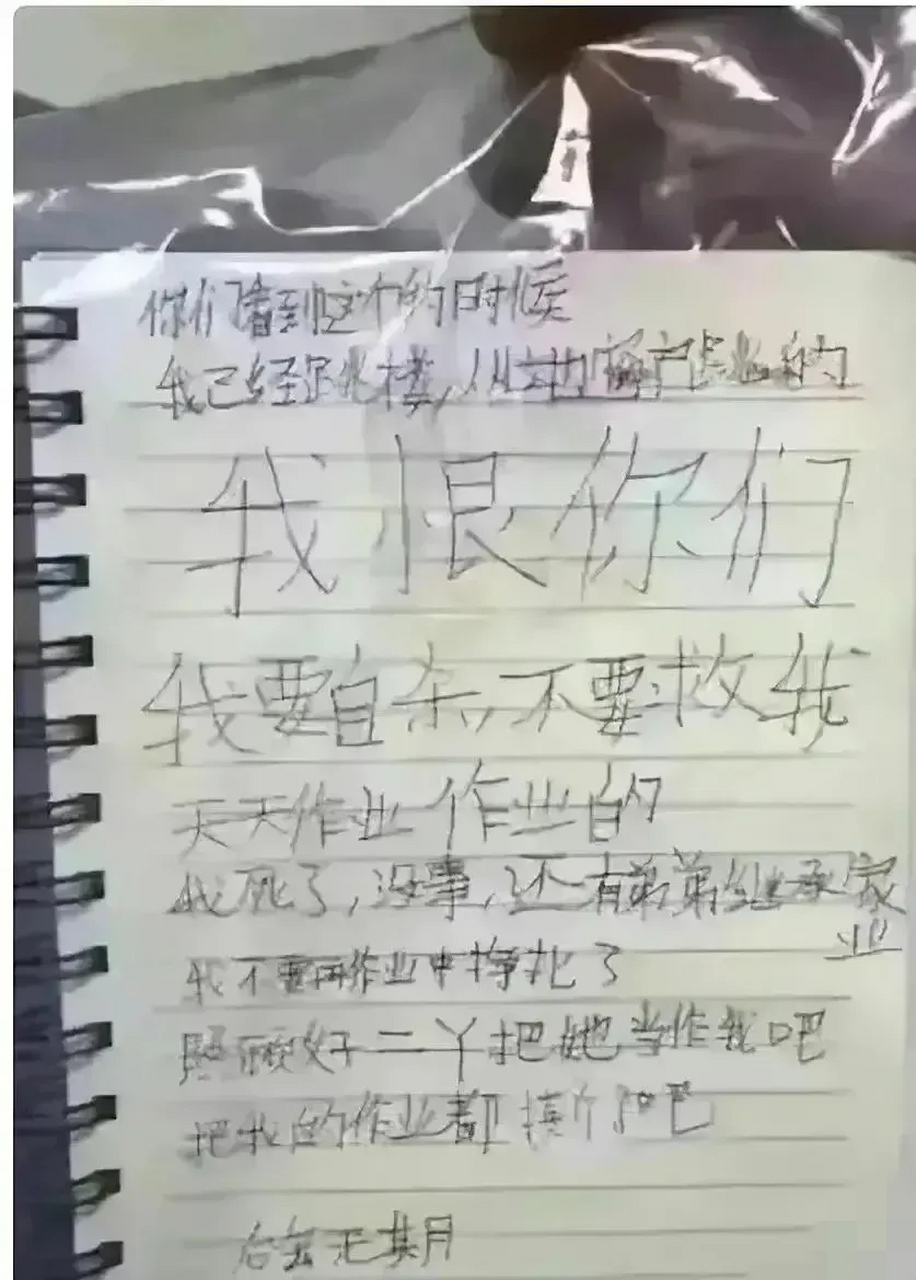 你们看到这个的时候
我已经跳楼,从 窗户跳的
我恨你们
我要自杀,不要救我
天天作业作业的
我死了,没事,还有弟弟继承家
业
我不要再作业中挣扎了
照顾好二丫把她当作我吧
把我的作业都 吧
后会无期